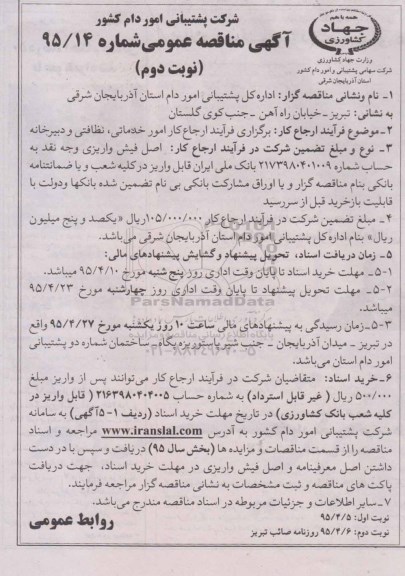 همه با هم
جهاد
کشاورزی
وزارت جهاد کشاورزی
شرکت سهامی پشتیبانی و امور دام کشور
استان آذربایجان شرقی
شرکت پشتیبانی امور دام کشور
آگهی مناقصه عمومی شماره ۹۵/۱۴
(نوبت دوم)
۱- نام ونشانی مناقصه گزار: اداره کل پشتیبانی امور دام استان آذربایجان شرقی
به نشانی: تبریز -خیابان راه آهن -جنب کوی گلستان
۲-موضوع فرآیند ارجاع کار: برگزاری فرآیند ارجاع کار امور خدماتی، نظافتی و دبیرخانه
۳- نوع و مبلغ تضمین شرکت در فرآیند ارجاع کار: اصل فیش واریزی وجه نقد به
حساب شماره ۲۱۷۳۹۸۰۴۰۱۰۰۹ بانک ملی ایران قابل واریز در کلیه شعب و یا ضمانتنامه
بانکی بنام مناقصه گزار و یا اوراق مشارکت بانکی بی نام تضمین شده بانکها ودولت با
قابلیت بازخرید قبل از سررسید
۴- مبلغ تضمین شرکت در فرآیند ارجاع کار ۱۰۵/۰۰۰/۰۰۰ریال «یکصد و پنج میلیون
ریال» بنام اداره کل پشتیبانی امور دام استان آذربایجان شرقی می‌باشد.
۵- زمان دریافت اسناد، تحویل پیشنهاد وگشایش پیشنهادهای مالی:
۵-۱- مهلت خرید اسناد تا پایان وقت اداری روز پنج شنبه مورخ ۹۵/۴/۱۰ میباشد.
۵-۲- مهلت تحویل پیشنهاد تا پایان وقت اداری روز چهارشنبه مورخ ۹۵/۴/۲۳
میباشد.
ParsNamadData
۵-۳-زمان رسیدگی به پیشنهادهای مالی ساعت ۱۰ روز یکشنبه مورخ ۹۵/۴/۲۷ واقع
در تبریز - میدان آذربایجان - جنب شیر پاستوریزه پگاه- ساختمان شماره دو پشتیبانی
امور دام استان می‌باشد.
۶-خرید اسناد: متقاضیان شرکت در فرآیند ارجاع کار می‌توانند پس از واریز مبلغ
۵۰۰/۰۰۰ ریال ( غیر قابل استرداد) به شماره حساب ۲۱۶۳۹۸۰۴۰۴۰۰۵ ( قابل واریز در
کلیه شعب بانک کشاورزی) در تاریخ مهلت خرید اسناد (ردیف ۱-۵آگهی) به سامانه
شرکت پشتیبانی امور دام کشور به آدرس www.iranslal.com مراجعه و اسناد
مناقصه را از قسمت مناقصات و مزایده ها (بخش سال ۹۵) دریافت و سپس با در دست
داشتن اصل معرفینامه و اصل فیش واریزی در مهلت خرید اسناد، جهت دریافت
پاکت های مناقصه و ثبت مشخصات به نشانی مناقصه گزار مراجعه فرمایند.
۷-سایر اطلاعات و جزئیات مربوطه در اسناد مناقصه مندرج می‌باشد.
نوبت اول: ۹۵/۴/۵
نوبت دوم: ۹۵/۴/۶ روزنامه صائب تبریز
روابط عمومی